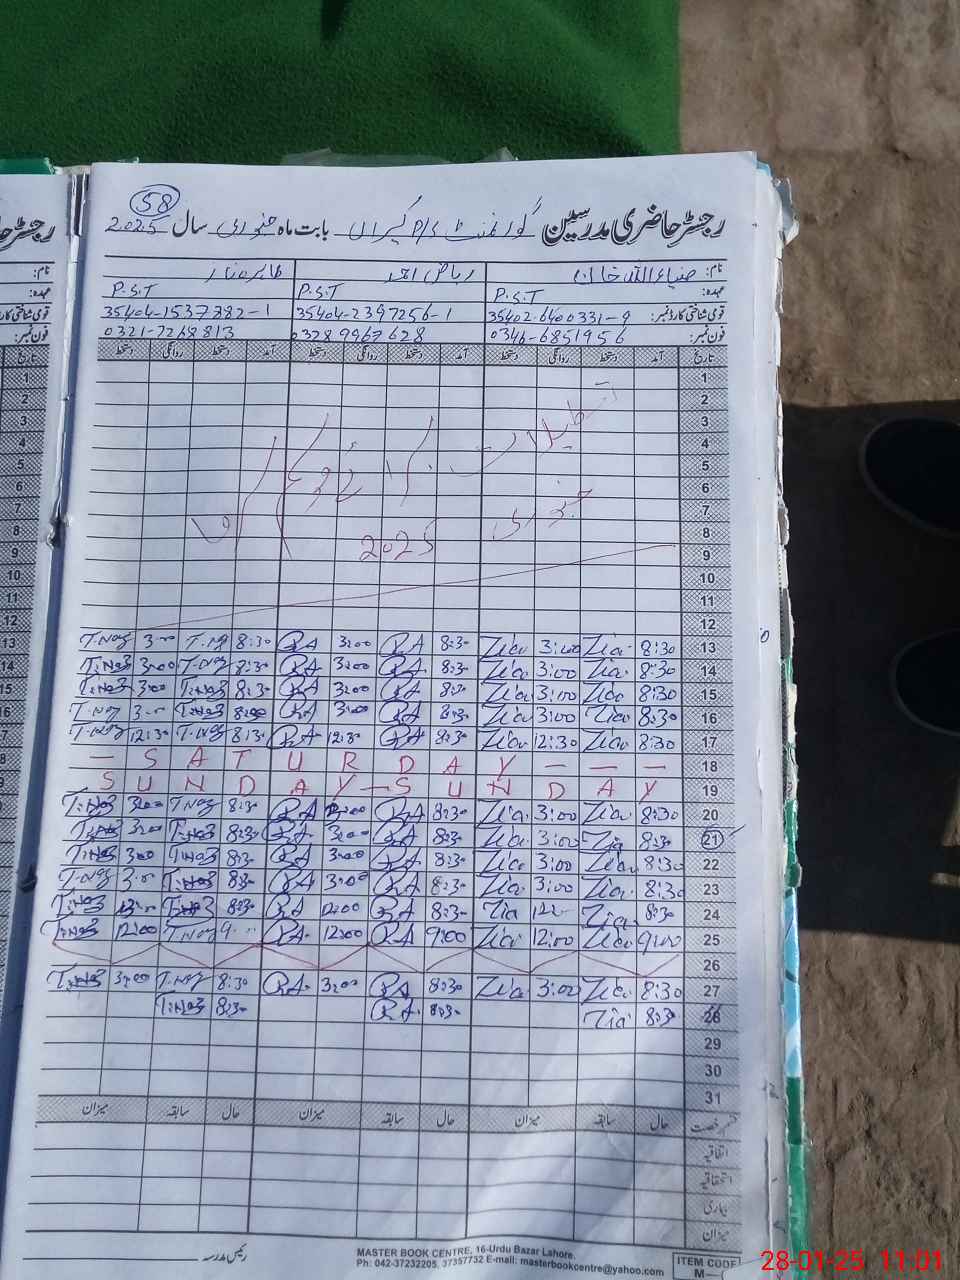 58
رجسٹر حاضری مدرسین گورنمنٹ P/S بابت ماہ جنوری سال 2025
نام: ضیاء اللہ خان ریاض احمد
عہدہ: P.S.T P.S.T P.S.T
قومی شناختی کارڈ نمبر: 35402-6400331-9 35404-2397256-1 35404-1537382-1
فون نمبر: 0346-6851956 0328 9967628 0321-7268813
تاریخ آمد دستخط روانگی دستخط آمد دستخط روانگی دستخط آمد دستخط روانگی دستخط
1
2
3
4
5
6
7
8
9
10
11
12
تعطیلات
جنوری 2025
13 8:30 Zia 3:00 Zia 8:30 RA 3:00 RA 8:30 T.Naz 3:00 T.Naz
14 8:30 Zia 3:00 Zia 8:30 RA 3:00 RA 8:30 T.Naz 3:00 T.Naz
15 8:30 Zia 3:00 Zia 8:30 RA 3:00 RA 8:30 T.Naz 3:00 T.Naz
16 8:30 Zia 3:00 Zia 8:30 RA 3:00 RA T.Naz 3:00 T.Naz
17 8:30 Zia 12:30 Zia 8:30 RA 12:30 RA 8:30 T.Naz 12:30 T.Naz
— S A T U R D A Y — — — 18
S U N D A Y — S U N D A Y 19
20 8:30 Zia 3:00 Zia 8:30 RA RA 8:30 T.Naz 3:00 T.Naz
21 8:30 Zia 3:00 Zia 8:30 RA 3:00 RA 8:30 T.Naz 3:00 T.Naz
22 8:30 Zia 3:00 Zia 8:30 RA 3:00 RA 8:30 T.Naz 3:00 T.Naz
23 8:30 Zia 3:00 Zia 8:30 RA 3:00 RA 8:30 T.Naz 3:00 T.Naz
24 8:30 Zia Zia 8:30 RA 12:00 RA 8:30 T.Naz T.Naz
25 9:00 Zia 12:00 Zia 9:00 RA 12:00 RA T.Naz 12:00 T.Naz
26
27 8:30 Zia 3:00 Zia 8:30 RA 3:00 RA 8:30 T.Naz 3:00 T.Naz
28 8:30 Zia 8:30 RA 8:30 T.Naz
29
30
31
قسم رخصت حال سابقہ میزان حال سابقہ میزان حال سابقہ میزان
اتفاقیہ
استحقاقیہ
بیماری
میزان
رئیس مدرسہ
MASTER BOOK CENTRE, 16-Urdu Bazar Lahore.
Ph: 042-37232205, 37357732 E-mail: masterbookcentre@yahoo.com
ITEM CODE
M—
28-01-25 11:01